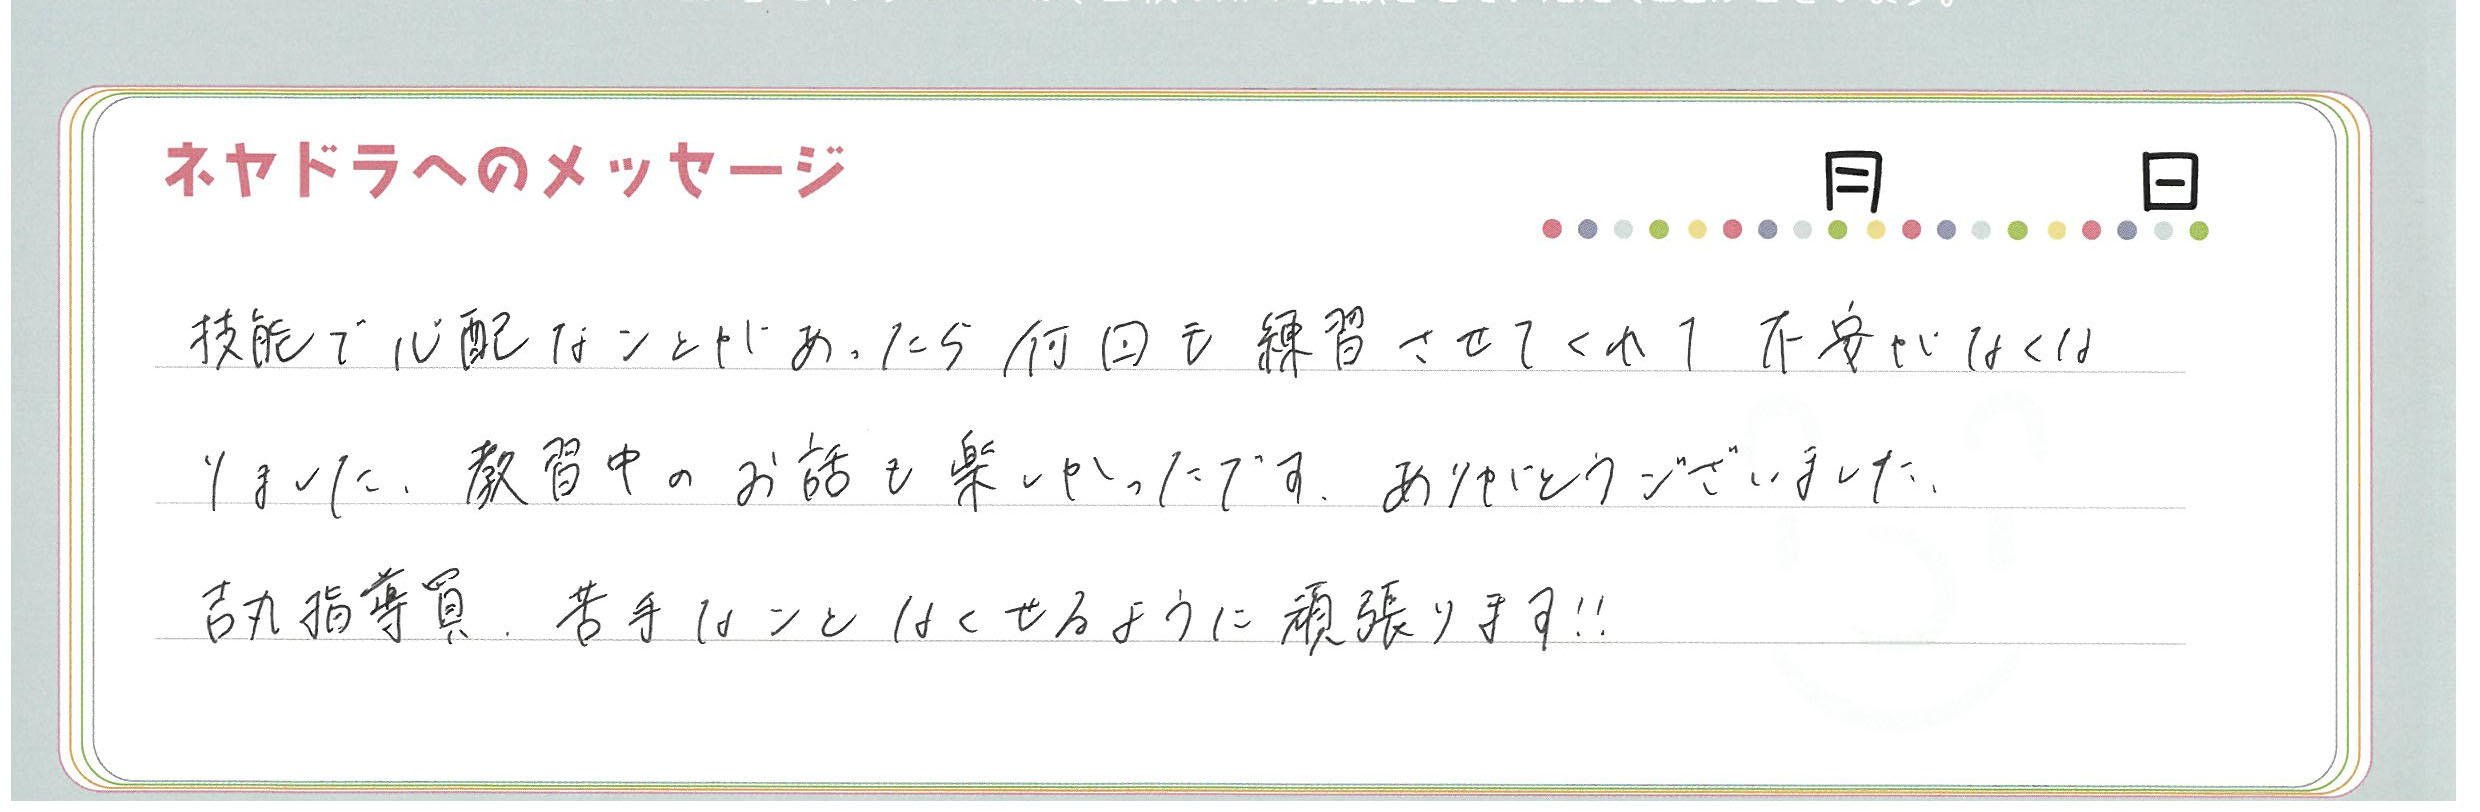 ネヤドラへのメッセージ
月 日
技能で心配なことがあったら何回も練習させてくれて不安がなくな
りました。教習中のお話も楽しかったです。ありがとうございました。
吉丸指導員、苦手なことなくせるように頑張ります!!